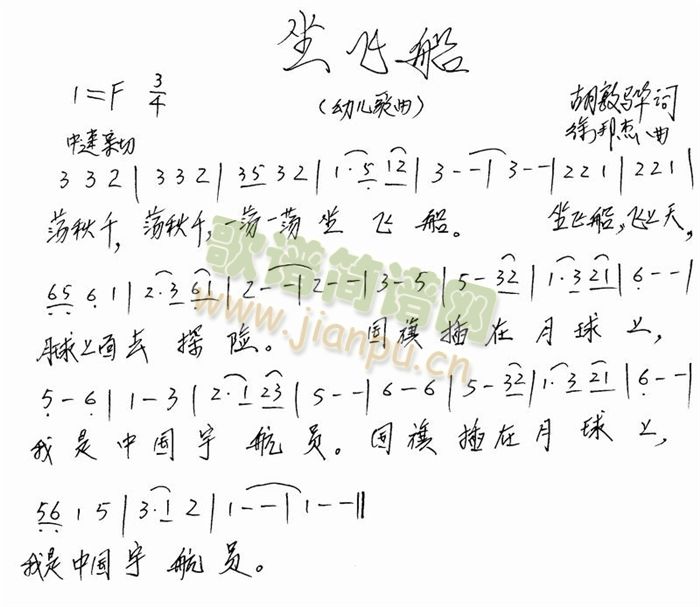 坐飞船
1=F 3/4
(幼儿歌曲)
胡敦骅词
中速 亲切
徐邦杰曲
3 3 2 | 3 3 2 | 35 32 | 1·5 12 | 3 - - | 3 - - | 2 2 1 | 2 2 1 |
荡秋千, 荡秋千, 一荡一荡 坐 飞 船。 坐飞船, 飞上天,
65 6 1 | 2·3 61 | 2 - - | 2 - - | 3 - 5 | 5 - 32 | 1·3 21 | 6 - - |
月球上面去 探 险。 国 旗 插 在 月 球 上,
5 - 6 | 1 - 3 | 2·1 23 | 5 - - | 6 - 6 | 5 - 32 | 1·3 21 | 6 - - |
我 是 中 国 宇 航 员。 国 旗 插 在 月 球 上,
56 1 5 | 3·1 2 | 1 - - | 1 - - ||
我是中国 宇 航 员。
歌谱简谱网
www.jianpu.cn